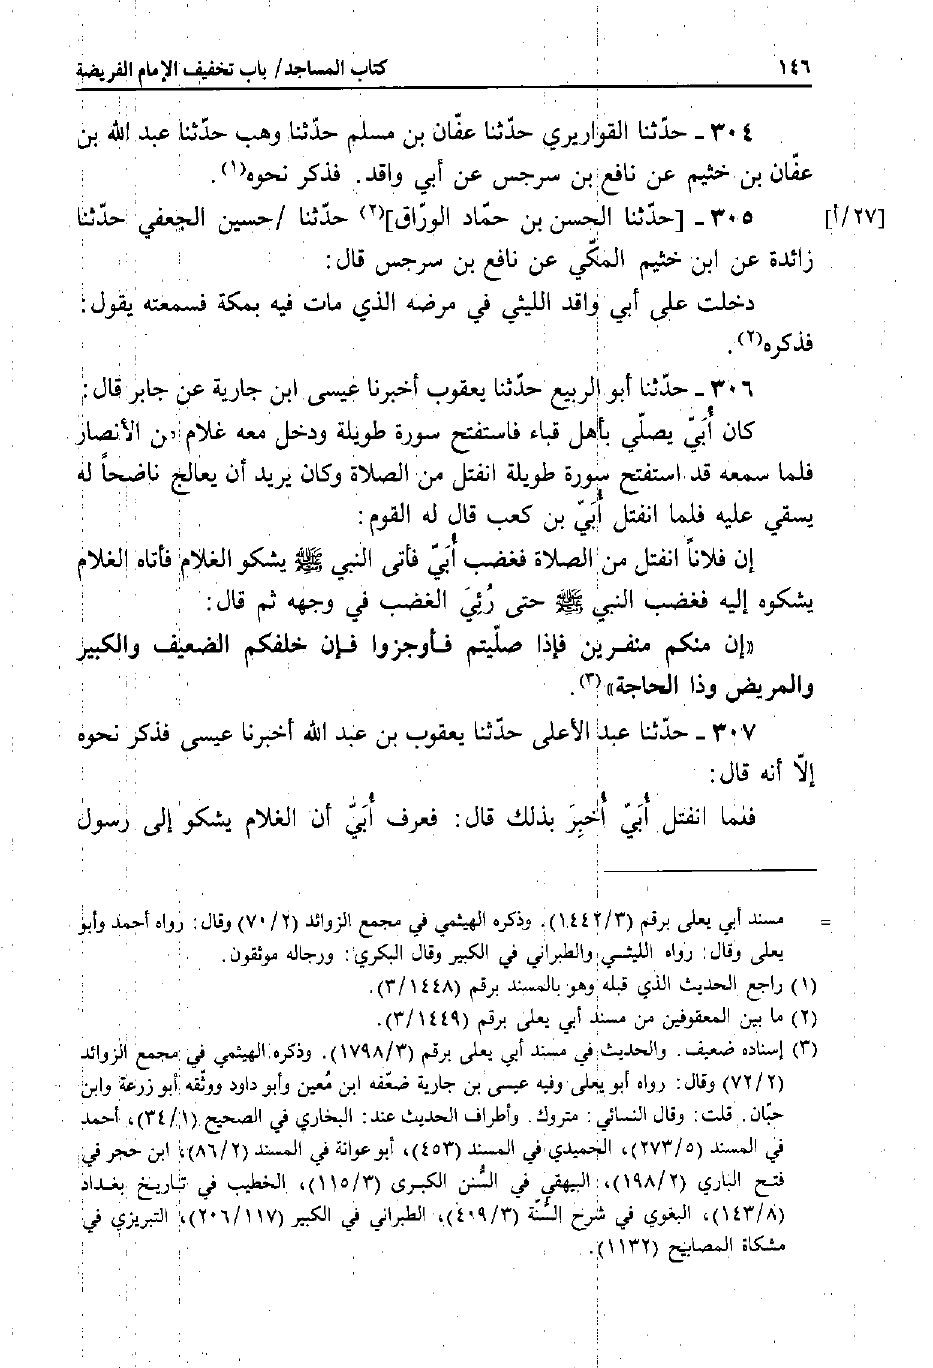 ١٤٦ كتاب المساجد/ باب تخفيف الإمام الفريضة
٣٠٤ ـ حدّثنا القواريري حدّثنا عفّان بن مسلم حدّثنا وهب حدّثنا عبد الله بن
عفّان بن خثيم عن نافع بن سرجس عن أبي واقد. فذكر نحوه(١).
[٢٧/أ] ٣٠٥ ـ [حدّثنا الحسن بن حمّاد الورّاق](٢) حدّثنا /حسين الجعفي حدّثنا
زائدة عن ابن خثيم المكّي عن نافع بن سرجس قال:
دخلت على أبي واقد الليثي في مرضه الذي مات فيه بمكة فسمعته يقول:
فذكره(٢).
٣٠٦ ـ حدّثنا أبو الربيع حدّثنا يعقوب أخبرنا عيسى ابن جارية عن جابر قال:
كان أُبَيّ يصلّي بأهل قباء فاستفتح سورة طويلة ودخل معه غلام من الأنصار
فلما سمعه قد استفتح سورة طويلة انفتل من الصلاة وكان يريد أن يعالج ناضحاً له
يسقي عليه فلما انفتل أُبَيّ بن كعب قال له القوم:
إن فلاناً انفتل من الصلاة فغضب أُبَيّ فأتى النبي ﷺ يشكو الغلام فأتاه الغلام
يشكوه إليه فغضب النبي ﷺ حتى رُئِيَ الغضب في وجهه ثم قال:
«إن منكم منفرين فإذا صلّيتم فأوجزوا فإن خلفكم الضعيف والكبير
والمريض وذا الحاجة»(٣).
٣٠٧ ـ حدّثنا عبد الأعلى حدّثنا يعقوب بن عبد الله أخبرنا عيسى فذكر نحوه
إلاّ أنه قال:
فلما انفتل أُبَيّ أُخبِرَ بذلك قال: فعرف أُبَيّ أن الغلام يشكو إلى رسول
= مسند أبي يعلى برقم (١٤٤٢/٣). وذكره الهيثمي في مجمع الزوائد (٧٠/٢) وقال: رواه أحمد وأبو
يعلى وقال: رواه الليثي والطبراني في الكبير وقال البكري: ورجاله موثقون.
(١) راجع الحديث الذي قبله وهو بالمسند برقم (٣/١٤٤٨).
(٢) ما بين المعقوفين من مسند أبي يعلى برقم (٣/١٤٤٩).
(٣) إسناده ضعيف. والحديث في مسند أبي يعلى برقم (١٧٩٨/٣). وذكره الهيثمي في مجمع الزوائد
(٧٢/٢) وقال: رواه أبو يعلى وفيه عيسى بن جارية ضعّفه ابن مُعين وأبو داود ووثّقه أبو زرعة وابن
حبّان. قلت: وقال النسائي: متروك. وأطراف الحديث عند: البخاري في الصحيح (٣٤/١)، أحمد
في المسند (٢٧٣/٥)، الحميدي في المسند (٤٥٣)، أبو عوانة في المسند (٨٦/٢)، ابن حجر في
فتح الباري (١٩٨/٢)، البيهقي في السُّنن الكبرى (١١٥/٣)، الخطيب في تاريخ بغداد
(١٤٣/٨)، البغوي في شرح السُّنّة (٤٠٩/٣)، الطبراني في الكبير (٢٠٦/١١٧)، التبريزي في
مشكاة المصابيح (١١٣٢).